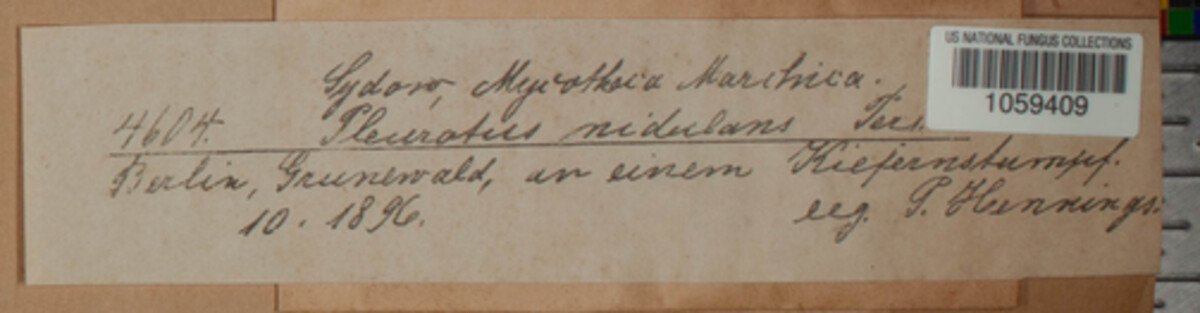 Sydow, Mycotheca Marchica.
4604. Pleurotus nidulans Pers.
Berlin, Grunewald, an einem Kiefernstumpf.
10. 1896. leg. P. Hennings.
US NATIONAL FUNGUS COLLECTIONS
1059409